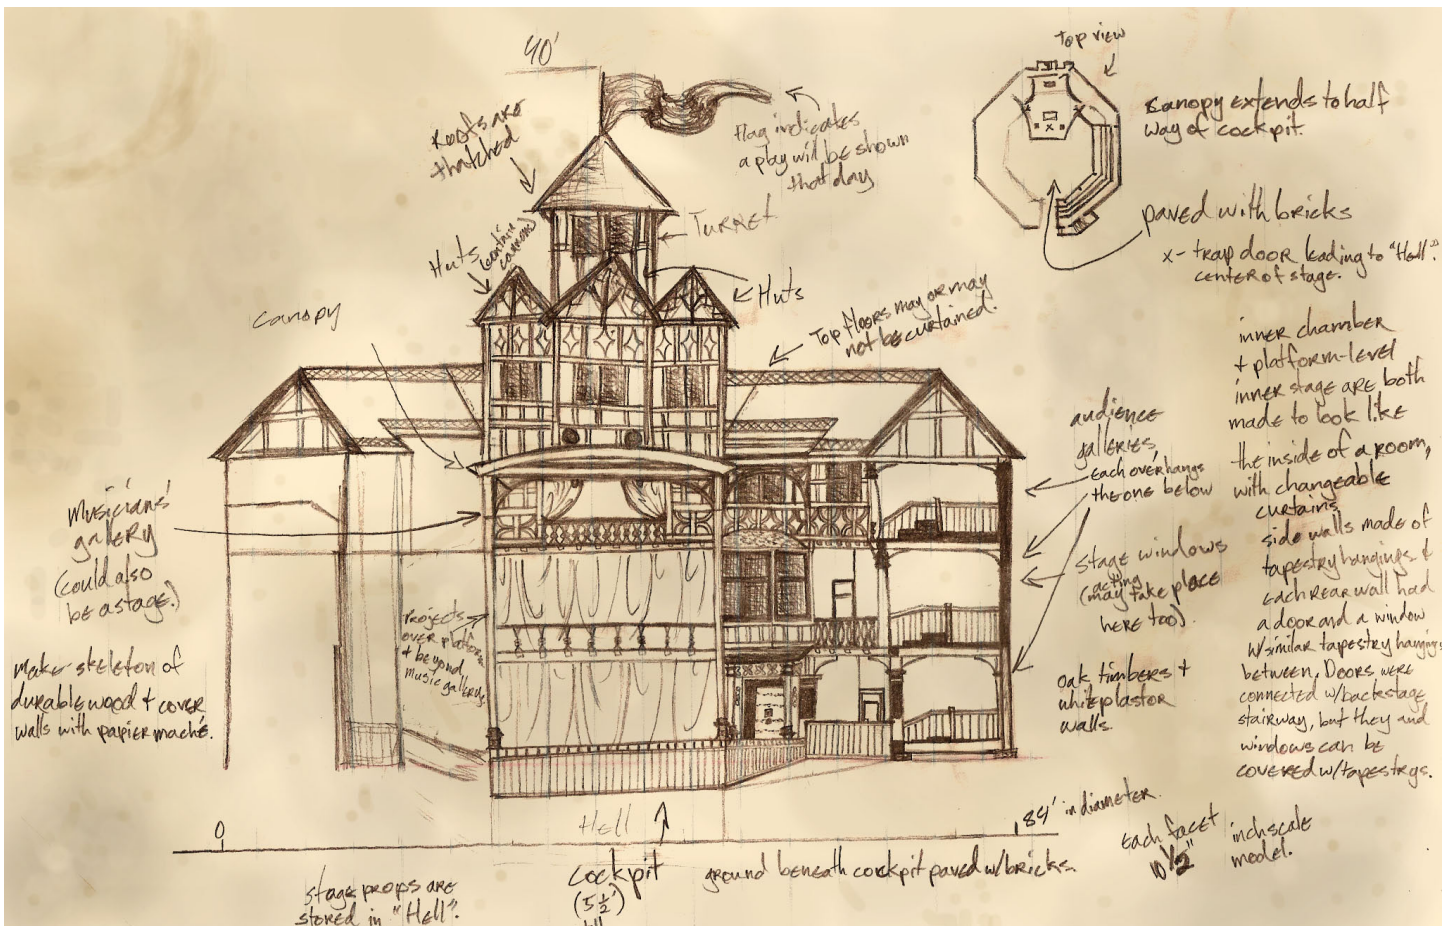 40'
Roofs are
thatched
Flag indicates
a play will be shown
that day
Top view
Canopy extends to half
way of cockpit.
paved with bricks
x - trap door leading to "Hell".
center of stage.
Turret
Huts
(contain
cannons)
Huts
Canopy
Top floors may or may
not be curtained.
inner chamber
& platform-level
inner stage are both
made to look like
the inside of a room,
with changeable
curtains
side walls made of
tapestry hangings &
each rear wall had
a door and a window
w/similar tapestry hangings
between. Doors were
connected w/backstage
stairway, but they and
windows can be
covered w/tapestrys.
audience
galleries,
each overhangs
the one below
stage windows
(acting
may take place
here too).
oak timbers &
white plastor
walls.
Musicians'
gallery
(could also
be a stage.)
Projects
over platform
& beyond
music gallery
Make skeleton of
durable wood & cover
walls with papier maché.
0
Hell
84' in diameter.
Each facet
10 1/2"
inch scale
model.
cockpit
(5 1/2')
ground beneath cockpit paved w/bricks.
stage props are
stored in "Hell".
x